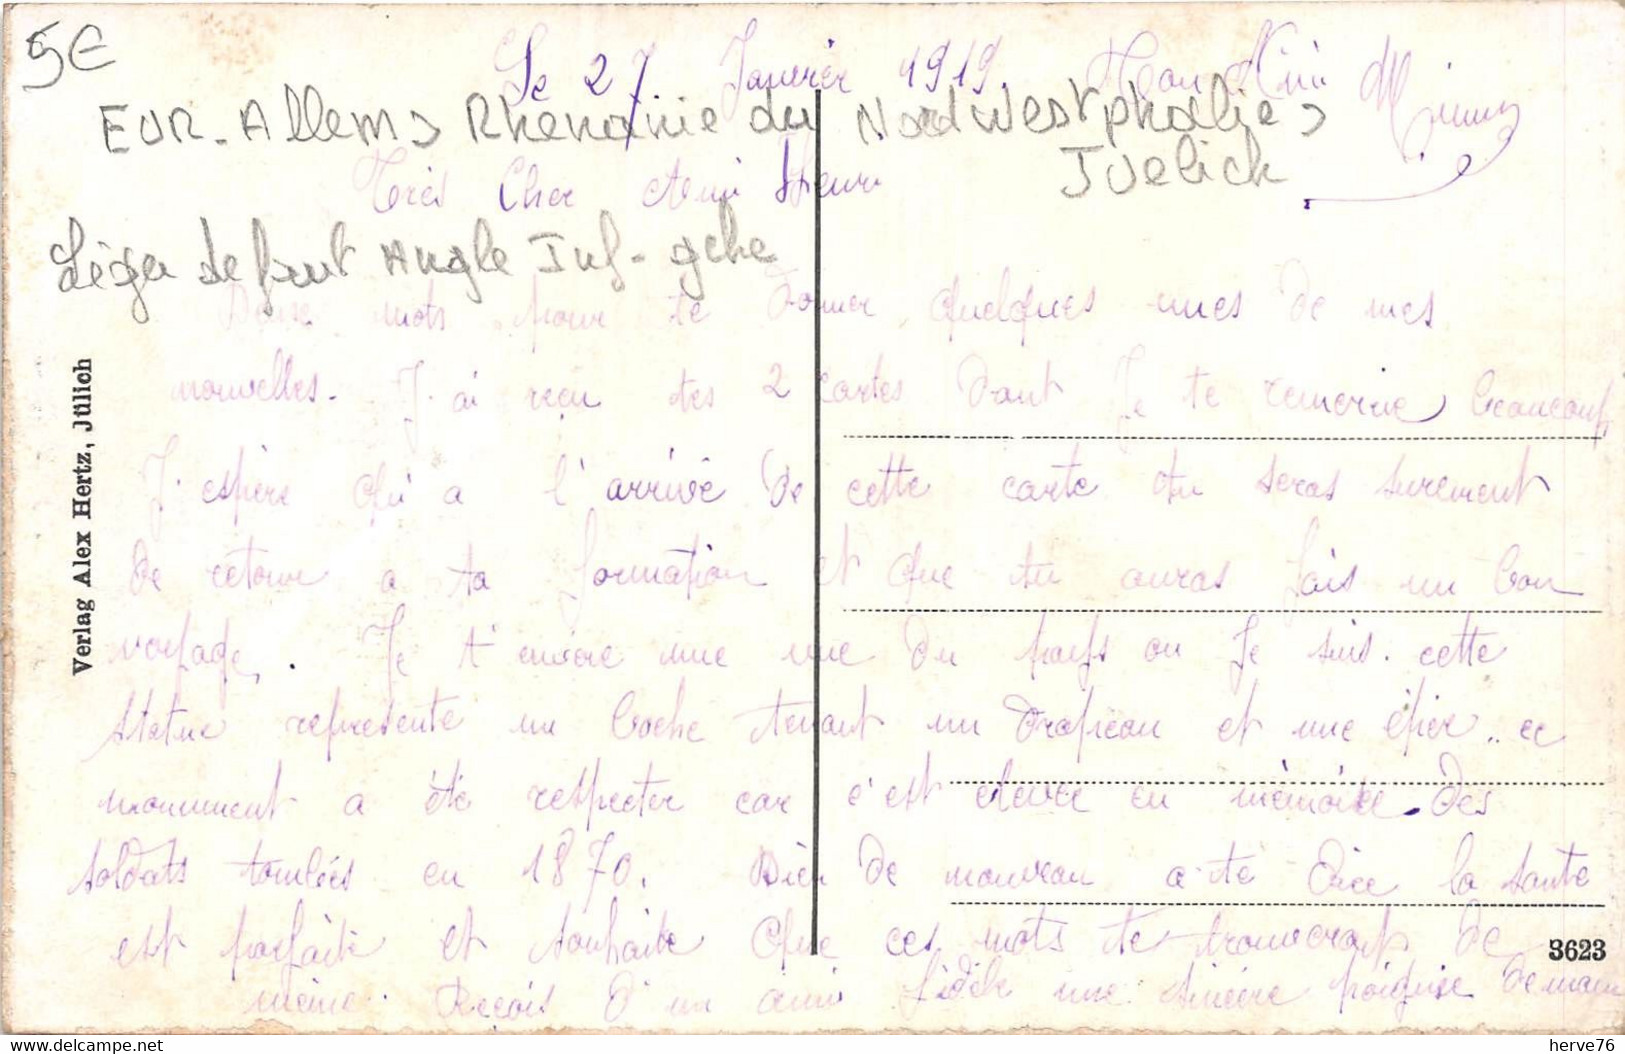 5€
Le 27 Janvier 1919.
EUR - Allem > Rhenanie du Nord Westphalie >
JUelick
Très Cher Ami Henri
Léger defaut Angle Inf - gche
Deux mots pour te donner quelques unes de mes
nouvelles. J'ai reçu tes 2 cartes dont Je te remercie beaucoup
J'espère qu'a l'arrivée de cette carte tu seras surement
de retour a ta formation et que tu auras fais un bon
voyage. Je t'envoie une vue du pays ou Je suis. cette
statue represente un boche tenant un drapeau et une épée.. ce
monument a été respecter car c'est élevée en mémoire des
soldats tombées en 1870. Rien de nouveau a te dire la sante
est parfaite et souhaite que ces mots te trouveront de
même. Reçois d'un ami fidèle une sincère poignée de main
Verlag Alex Hertz, Jülich
3623
herve76